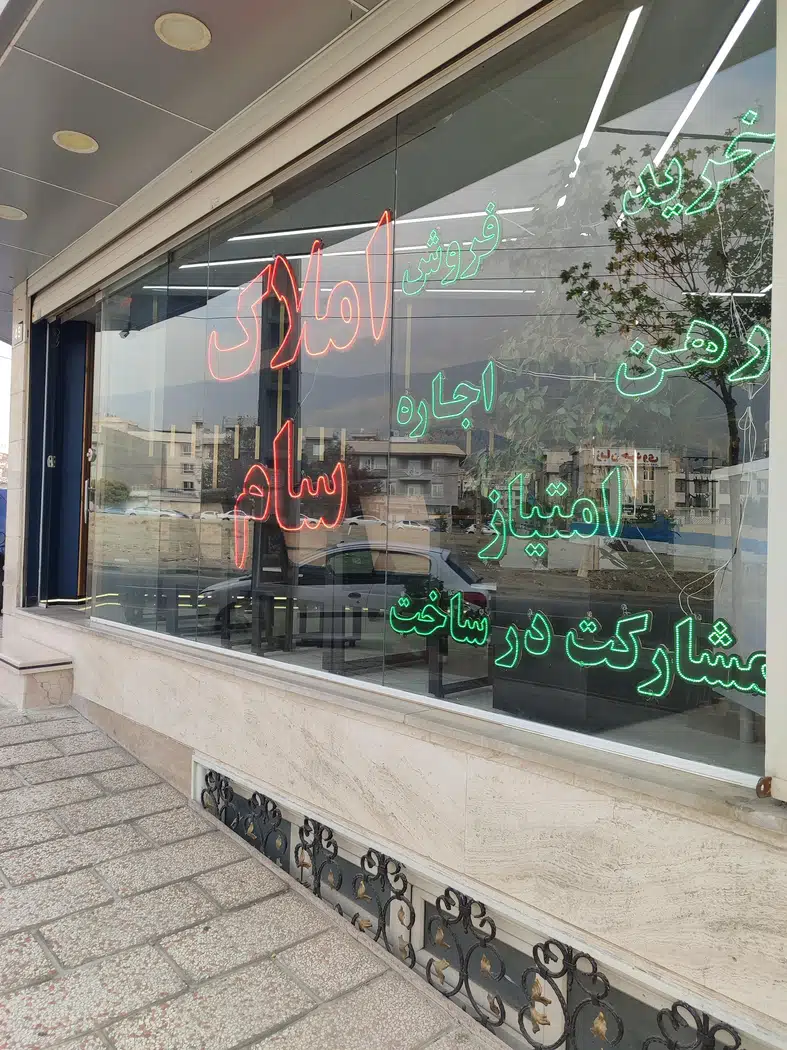 املاک
سام
خرید
فروش
رهن
اجاره
امتیاز
مشارکت در ساخت